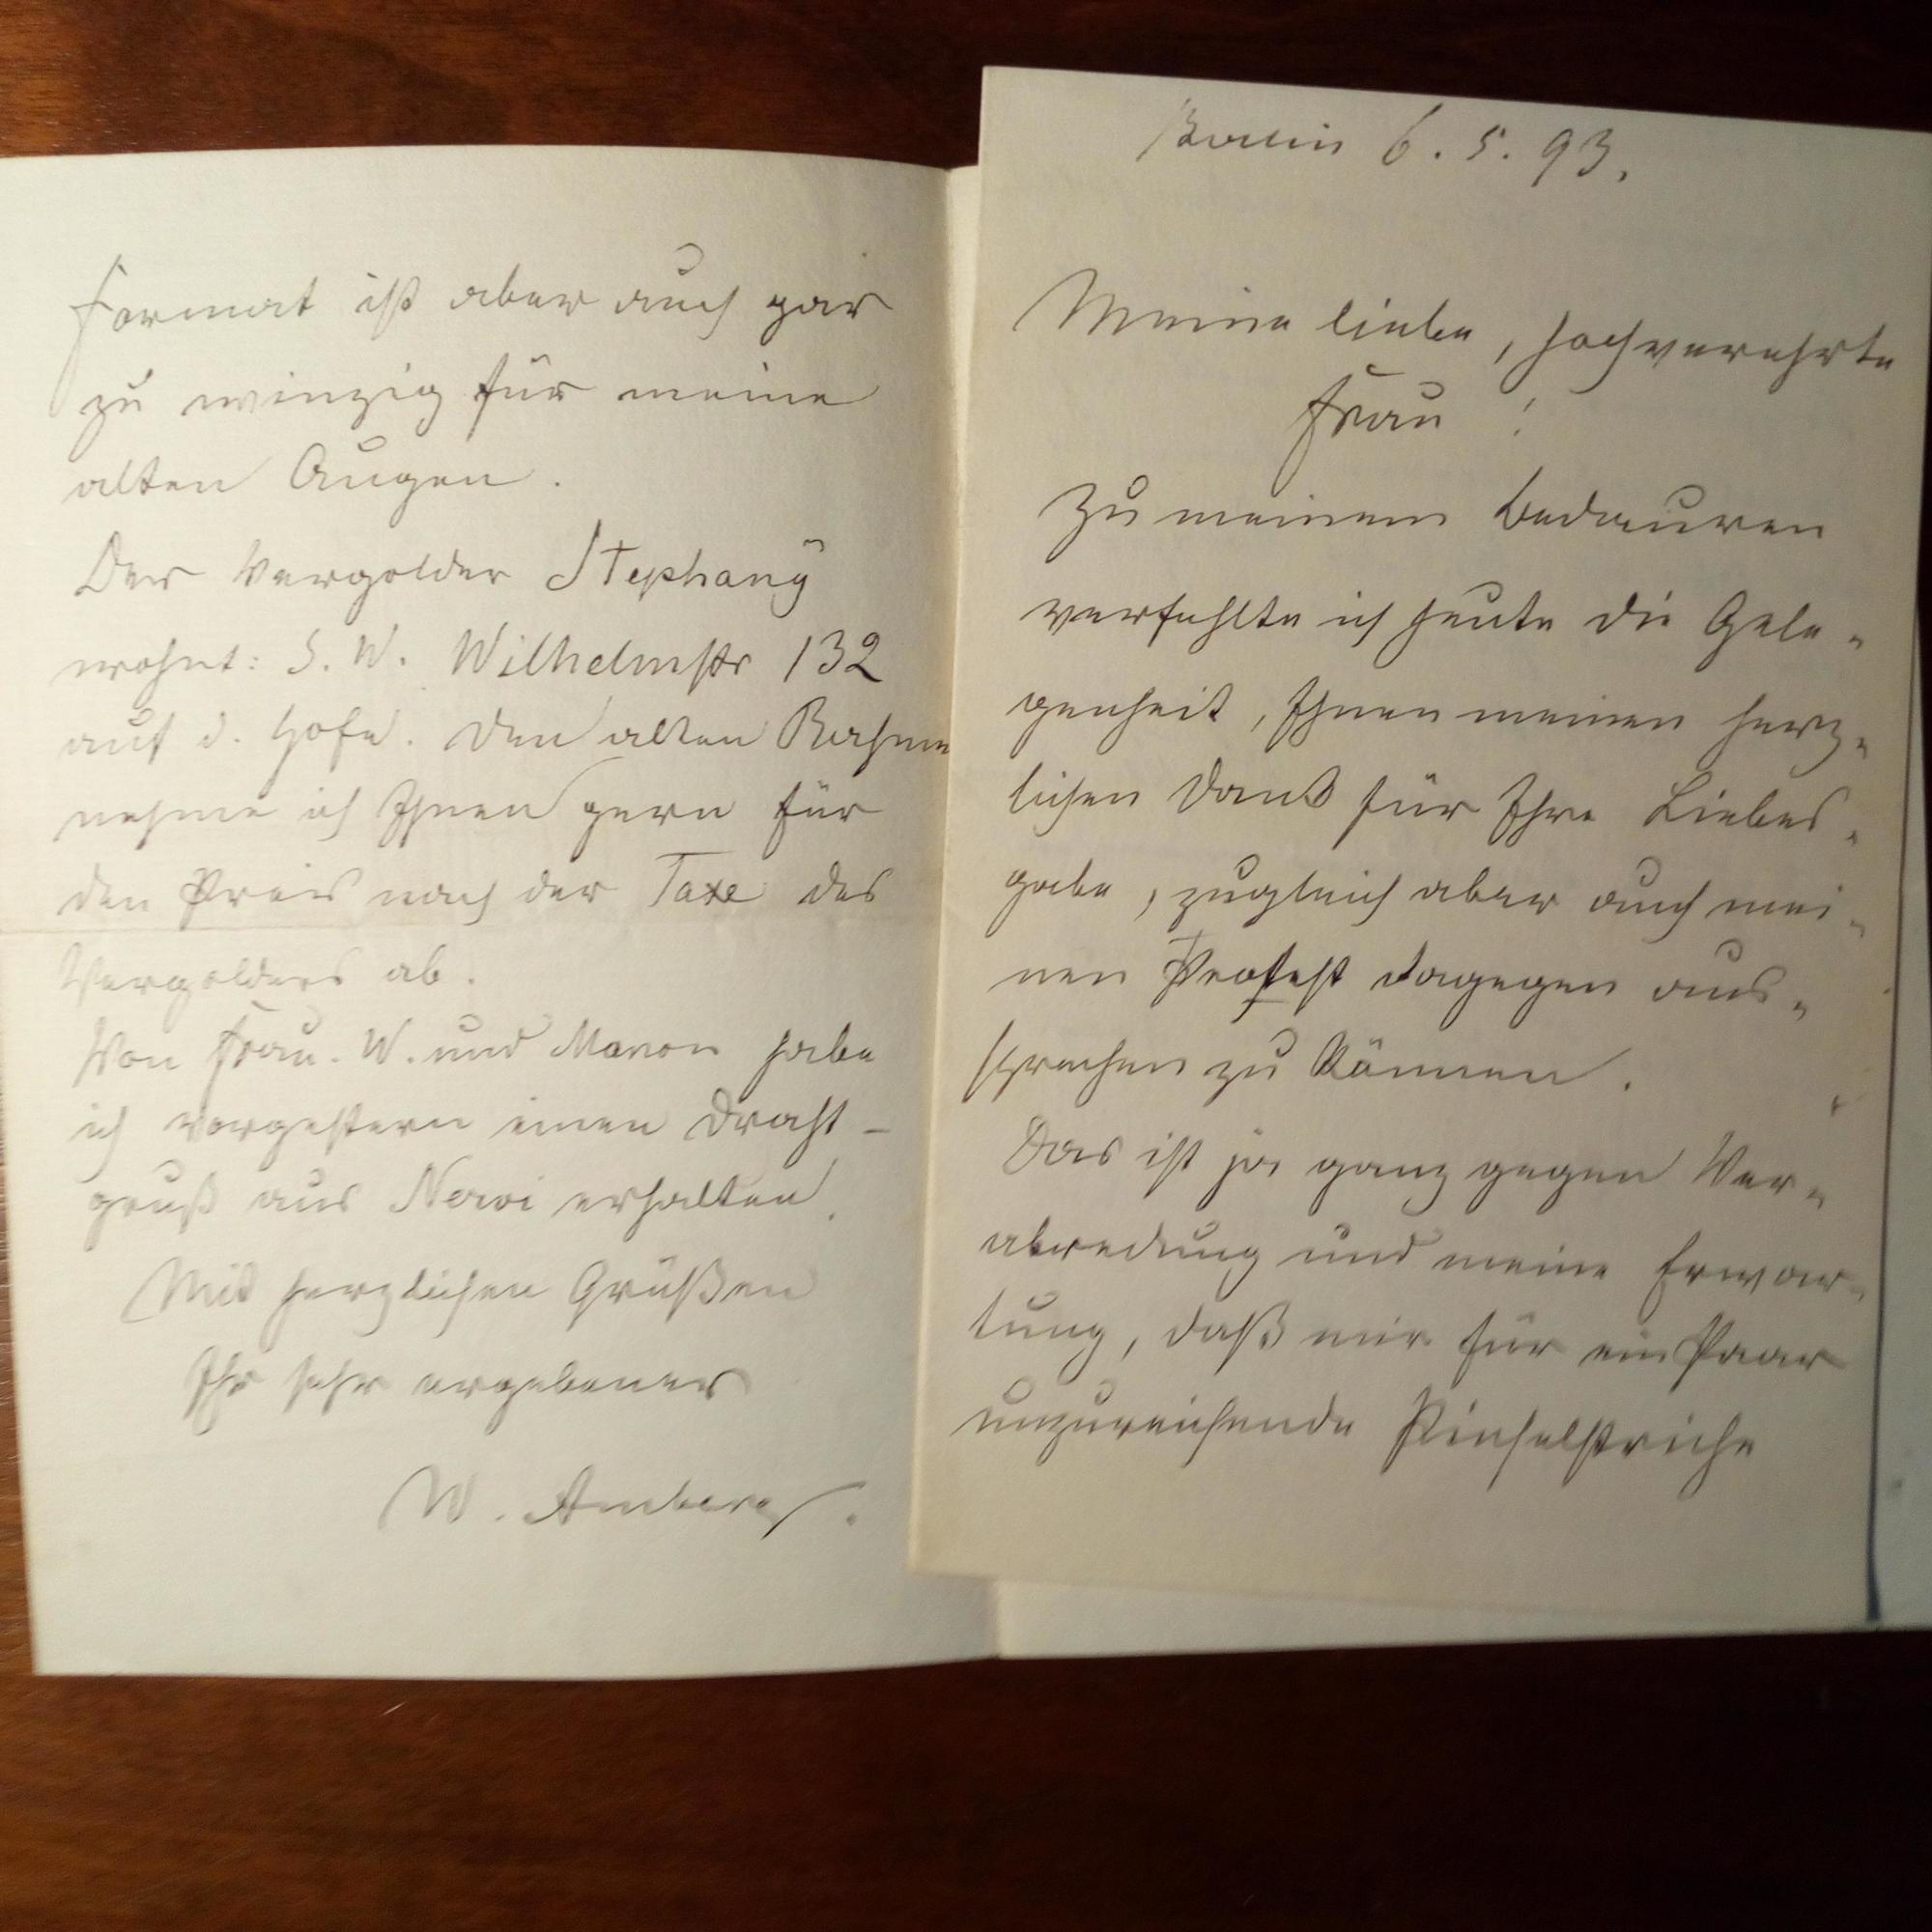 Berlin 6. 5. 93.
Meine liebe, hochverehrte
Frau!
Zu meinem Bedauren
verfehlte ich heute die Gele-
genheit, Ihnen meinen herz-
lichen Dank für Ihre Liebes-
gabe, zugleich aber auch mei-
nen Protest dagegen aus-
sprechen zu können.
Das ist ja ganz gegen Ver-
abredung und meine Erwar-
tung, daß mir für ein Paar
unzureichende Pinselstriche
Format ist aber auch gar
zu winzig für meine
alten Augen.
Der Vergolder Stephany
wohnt: S. W. Wilhelmstr 132
auf d. Hofe. Den alten Rahmen
nehme ich Ihnen gern für
den Preis nach der Taxe des
Vergolders ab.
Von Frau. W. und Manon habe
ich vorgestern einen Draht-
gruß aus Nervi erhalten.
Mit herzlichen Grüßen
Ihr sehr ergebener
W. Amberg.